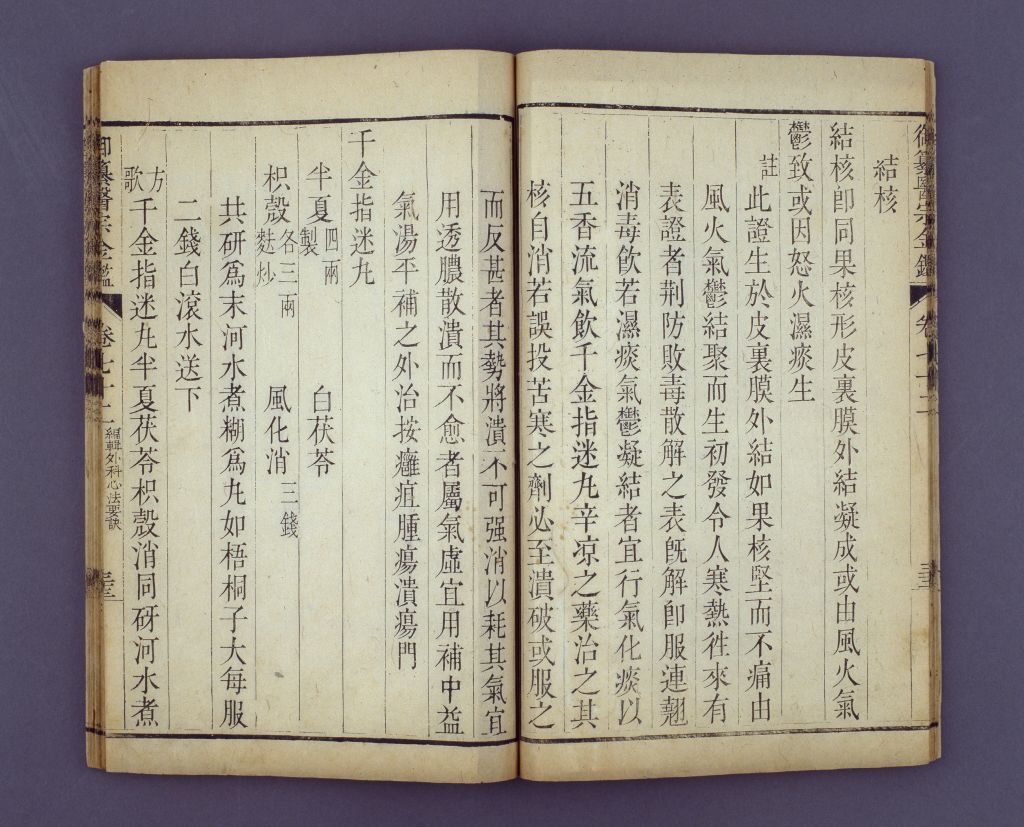 御纂醫宗金鑑 卷七十二
結核
結核卽同果核形皮裏膜外結凝成或由風火氣
鬱致或因怒火濕痰生
註此證生於皮裏膜外結如果核堅而不痛由
風火氣鬱結聚而生初發令人寒熱徃來有
表證者荆防敗毒散解之表旣解卽服連翹
消毒飮若濕痰氣鬱凝結者宜行氣化痰以
五香流氣飮千金指迷丸辛凉之藥治之其
核自消若誤投苦寒之劑必至潰破或服之
而反甚者其勢將潰不可强消以耗其氣宜
用透膿散潰而不愈者屬氣虛宜用補中益
氣湯平補之外治按癰疽腫瘍潰瘍門
千金指迷丸
半夏四兩製 白茯苓
枳殼各三兩麩炒 風化消三錢
共研爲末河水煮糊爲丸如梧桐子大每服
二錢白滾水送下
方歌千金指迷丸半夏茯苓枳殼消同硏河水煮
御纂醫宗金鑑 卷七十二 編輯外科心法要訣